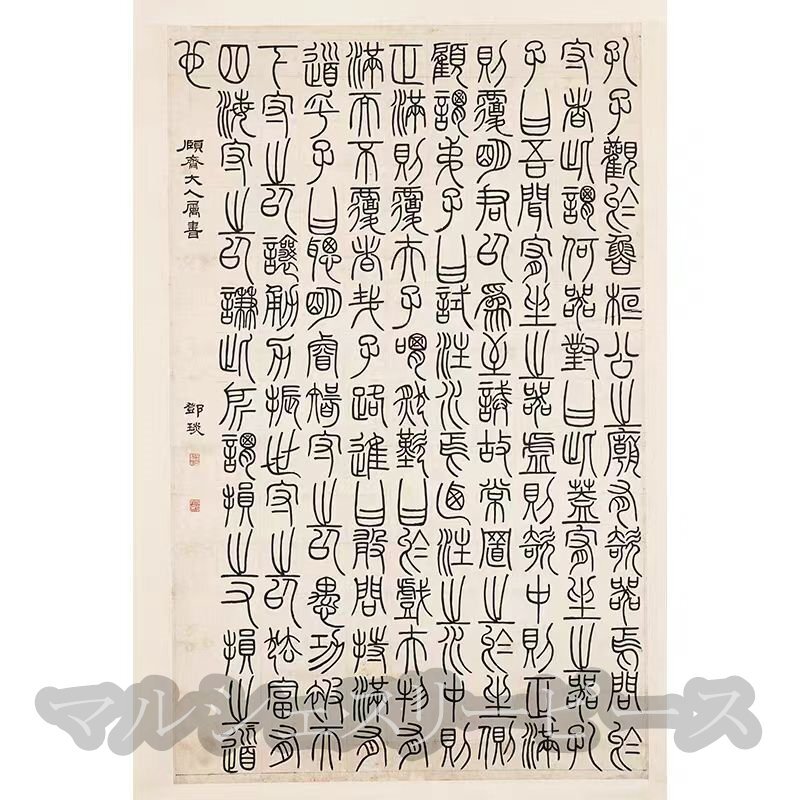 孔子觀於魯桓公之廟有欹器焉問於
守者此謂何器對曰此蓋宥坐之器孔
子曰吾聞宥坐之器虛則欹中則正滿
則覆明君以為至誡故常置之於坐側
顧謂弟子曰試注水焉乃注之水中則
正滿則覆夫子喟然歎曰於戲夫物有
滿而不覆者哉子路進曰敢問持滿有
道乎子曰聰明睿智守之以愚功被天
下守之以讓勇力振世守之以怯富有
四海守之以謙此所謂損之又損之道
也
頤齋大人屬書
鄧琰
マルシェスリーピース